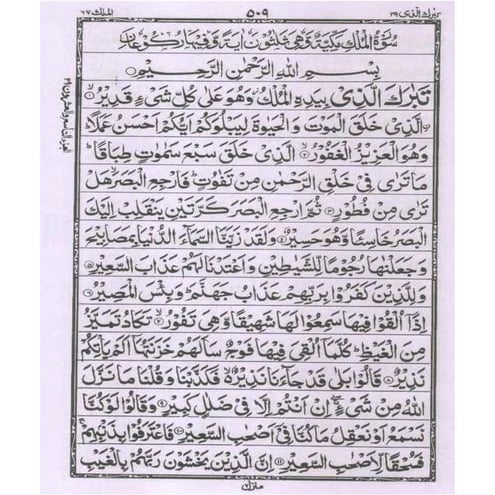 تبرك الذی ٢٩ ٥٠٩ الملك ٦٧
سُوْرَةُ الْمُلْكِ مَكِّيَّةٌ وَّهِيَ ثَلٰثُوْنَ اٰيَةً وَّفِيْهَا رُكُوْعَانِ
بِسْمِ اللّٰهِ الرَّحْمٰنِ الرَّحِيْمِ
تَبٰرَكَ الَّذِيْ بِيَدِهِ الْمُلْكُ وَهُوَ عَلٰى كُلِّ شَيْءٍ قَدِيْرُ ۙ١
الَّذِيْ خَلَقَ الْمَوْتَ وَالْحَيٰوةَ لِيَبْلُوَكُمْ اَيُّكُمْ اَحْسَنُ عَمَلًا ؕ
وَهُوَ الْعَزِيْزُ الْغَفُوْرُ ۙ٢ الَّذِيْ خَلَقَ سَبْعَ سَمٰوٰتٍ طِبَاقًا ؕ
مَا تَرٰى فِيْ خَلْقِ الرَّحْمٰنِ مِنْ تَفٰوُتٍ ؕ فَارْجِعِ الْبَصَرَ ۙ هَلْ
تَرٰى مِنْ فُطُوْرٍ ٣ ثُمَّ ارْجِعِ الْبَصَرَ كَرَّتَيْنِ يَنْقَلِبْ اِلَيْكَ
الْبَصَرُ خَاسِئًا وَّهُوَ حَسِيْرٌ ٤ وَلَقَدْ زَيَّنَّا السَّمَآءَ الدُّنْيَا بِمَصَابِيْحَ
وَجَعَلْنٰهَا رُجُوْمًا لِّلشَّيٰطِيْنِ وَاَعْتَدْنَا لَهُمْ عَذَابَ السَّعِيْرِ ٥
وَلِلَّذِيْنَ كَفَرُوْا بِرَبِّهِمْ عَذَابُ جَهَنَّمَ ؕ وَبِئْسَ الْمَصِيْرُ ٦
اِذَآ اُلْقُوْا فِيْهَا سَمِعُوْا لَهَا شَهِيْقًا وَّهِيَ تَفُوْرُ ۙ٧ تَكَادُ تَمَيَّزُ
مِنَ الْغَيْظِ ؕ كُلَّمَآ اُلْقِيَ فِيْهَا فَوْجٌ سَاَلَهُمْ خَزَنَتُهَآ اَلَمْ يَاْتِكُمْ
نَذِيْرٌ ٨ قَالُوْا بَلٰى قَدْ جَآءَنَا نَذِيْرٌ ۙ فَكَذَّبْنَا وَقُلْنَا مَا نَزَّلَ
اللّٰهُ مِنْ شَيْءٍ ۖ اِنْ اَنْتُمْ اِلَّا فِيْ ضَلٰلٍ كَبِيْرٍ ٩ وَقَالُوْا لَوْ كُنَّا
نَسْمَعُ اَوْ نَعْقِلُ مَا كُنَّا فِيْٓ اَصْحٰبِ السَّعِيْرِ ١٠ فَاعْتَرَفُوْا بِذَنْۢبِهِمْ ۚ
فَسُحْقًا لِّاَصْحٰبِ السَّعِيْرِ ١١ اِنَّ الَّذِيْنَ يَخْشَوْنَ رَبَّهُمْ بِالْغَيْبِ